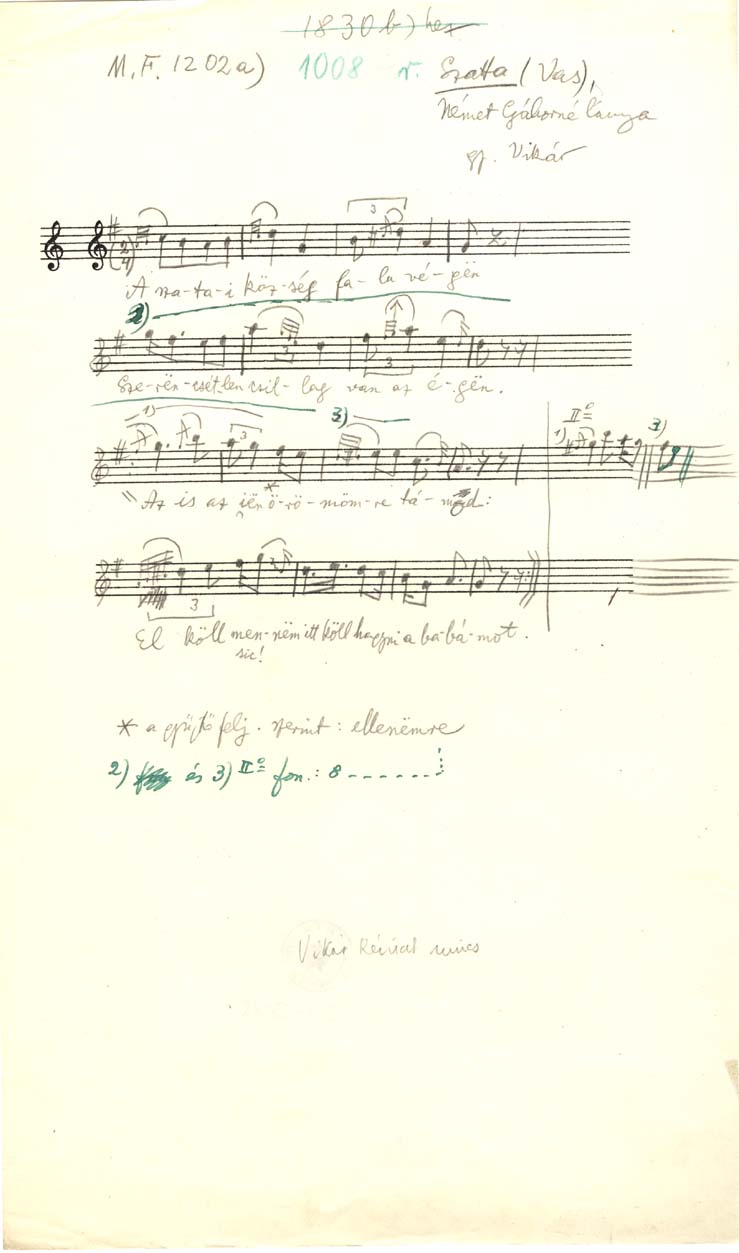 1830b) hez
M.F. 1202a) 1008 r. Szatta (Vas),
Német Gáborné lánya
gy. Vikár
3
2/4
A sza-ta-i köz-ség fa-lu vé-gën
2)
3 3
Sze-rën-csét-len csil-lag van az é-gën.
1) 3) II° 1) 3)
3
Az is az iën ö-rö-möm-re tá-mod:
*
3
El köll men-nëm itt köll hagyni a ba-bá-mot.
sic!
* a gyűjtő felj. szerint: ellenëmre
2) és 3) II° fon.: 8
Vikár kéziat nincs